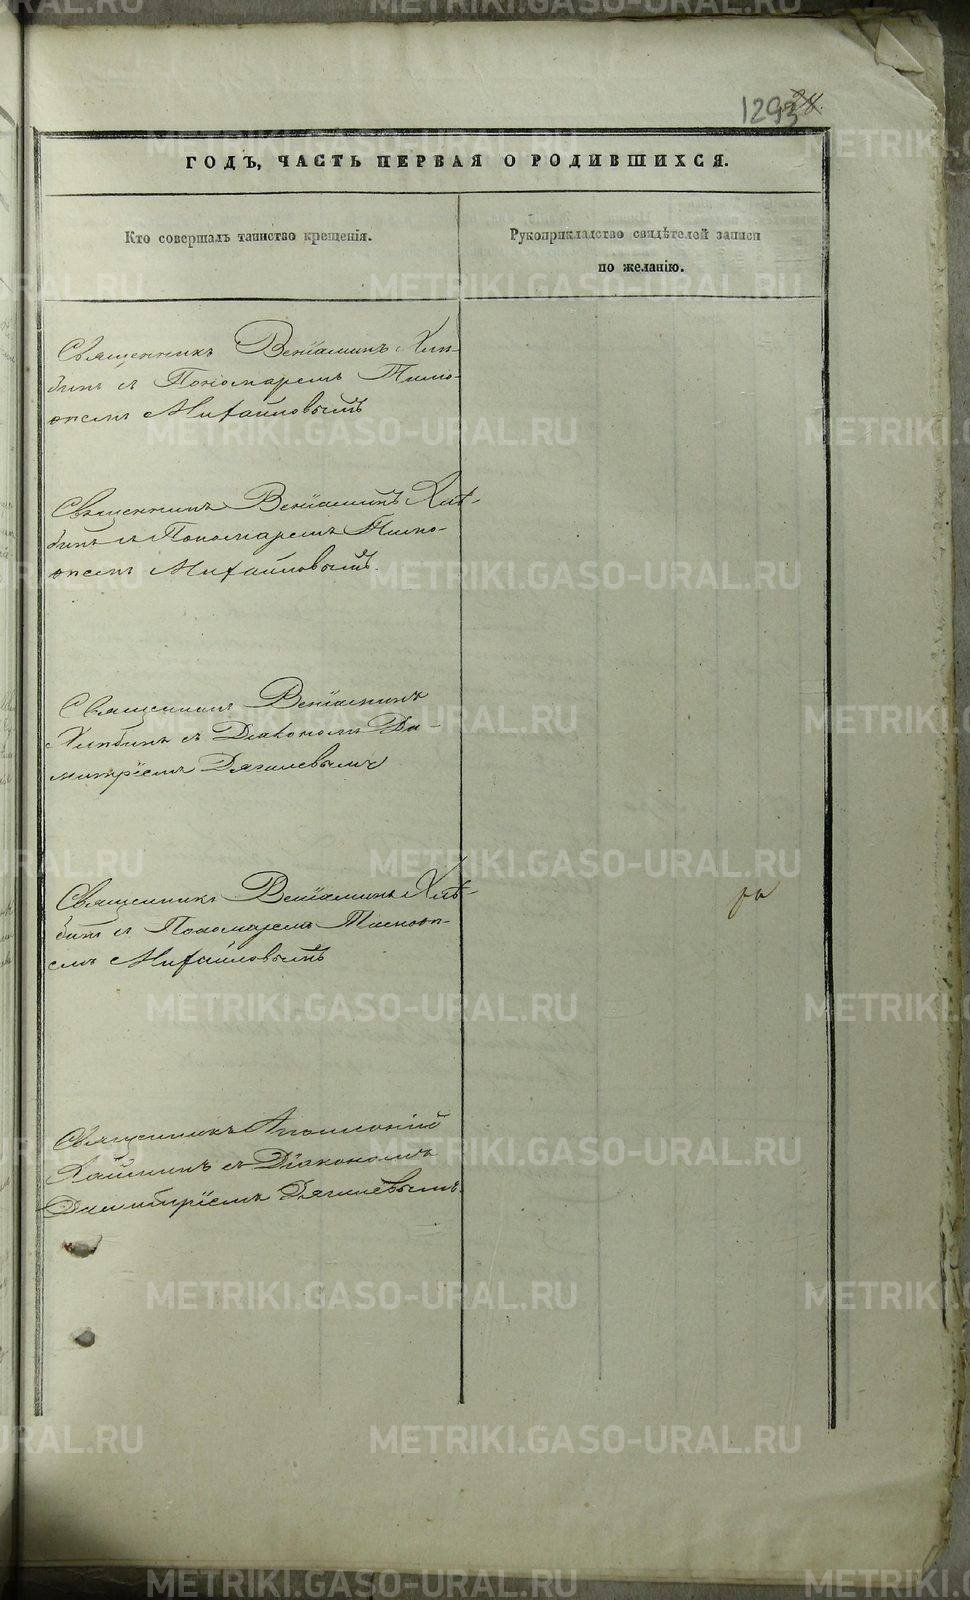 1293
ГОДЪ, ЧАСТЬ ПЕРВАЯ О РОДИВШИХСЯ.
Кто совершалъ таинство крещенія.
Рукоприкладство свидѣтелей записи
по желанію.
Священникъ Веніаминъ Хлѣ-
бинъ съ Пономаремъ Тимо-
ѳеемъ Михайловымъ
Священникъ Веніаминъ Хлѣ-
бинъ съ Пономаремъ Тимо-
ѳеемъ Михайловымъ.
Священникъ Веніаминъ
Хлѣбинъ съ Діакономъ Ди-
митріемъ Дягилевымъ
Священникъ Веніаминъ Хлѣ-
бинъ съ Пономаремъ Тимоѳе-
емъ Михайловымъ
Священникъ Аполлоній
съ Діакономъ
Димитріемъ Дягилевымъ.
METRIKI.GASO-URAL.RU